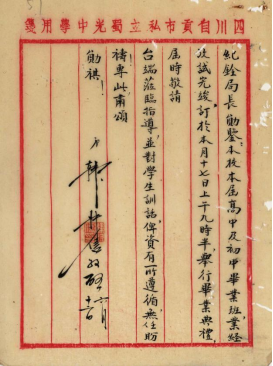 四川自貢市私立蜀光中學用箋
紀銓局長勛鑒本校本屆高甲及初甲畢業班業經
攷試完竣訂於本月十七日上午九時半舉行畢業典禮
屆時敬請
台端蒞臨指導並對學生訓話俾資有所遵循無任盼
禱專此肅頌
勛祺
韓叔信